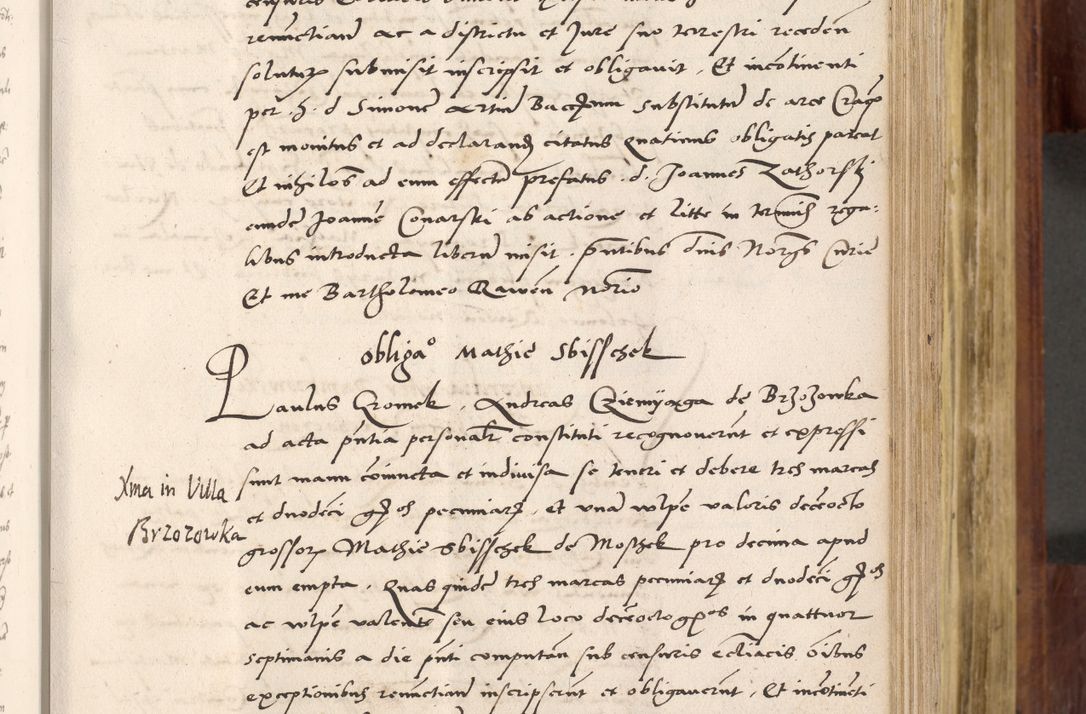 renunctian ac a districtu et Jure suo terrestri receden
solutur submisit inscripsit et obligavit. Et incōtinenti
per h. d Simonē Artiū substitutū de arce Craco
est monitus et ad declarand citatus quatinus obligatis pareat
Et nihilos ad eum effectū prefatus .d. Joannes Zathorski
eundē Joannē Conarski ab actione et litte in terminis rega:
libus introducta liberū misit. pntibus dnis Norgs Curie
Et me Bartholomeo Rawen Norio
obligao Mathie Sbisschek
Paulus Gromek, Andreas Cziemyorga de Brzozowka
ad acta pntia personalr constituti recognoverūt et expressi
sunt manu cōiuncta et indivisa se teneri et debere tres marcas
et duodeci gr os pecuniar, et unā vulpē valoris decēocto
grossor Mathie Sbisschek de Moschek pro decima apud
eum empta. Quas quidē tres marcas pecuniar et duodeci gr os
ac vulpē valentē seu eius loco decēocto gros in quattuor
septimanis a die pnti computan sub censuris eccliacis oibus
exceptionibus renunctian inscripserūt et obligaverūt, Et incōtinēti
Xma in Villa
Brzozowka